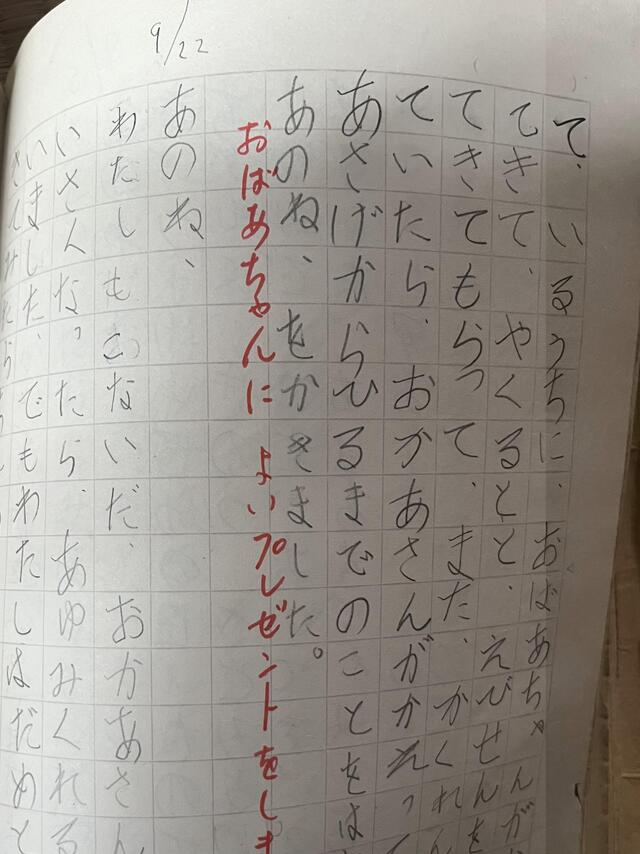 9/22
て、いるうちに、おばあちゃんが
てきて、やくるとと、えびせんを
てきてもらって、また、かくれん
ていたら、おかあさんがかえって
あさげからひるまでのことをは
あのね、をかきました。
おばあちゃんに よいプレゼントをしま
あのね、
わたしもこないだ、おかあさん
いさんなったら、あゆみくれる
いました、でもわたしはだめと